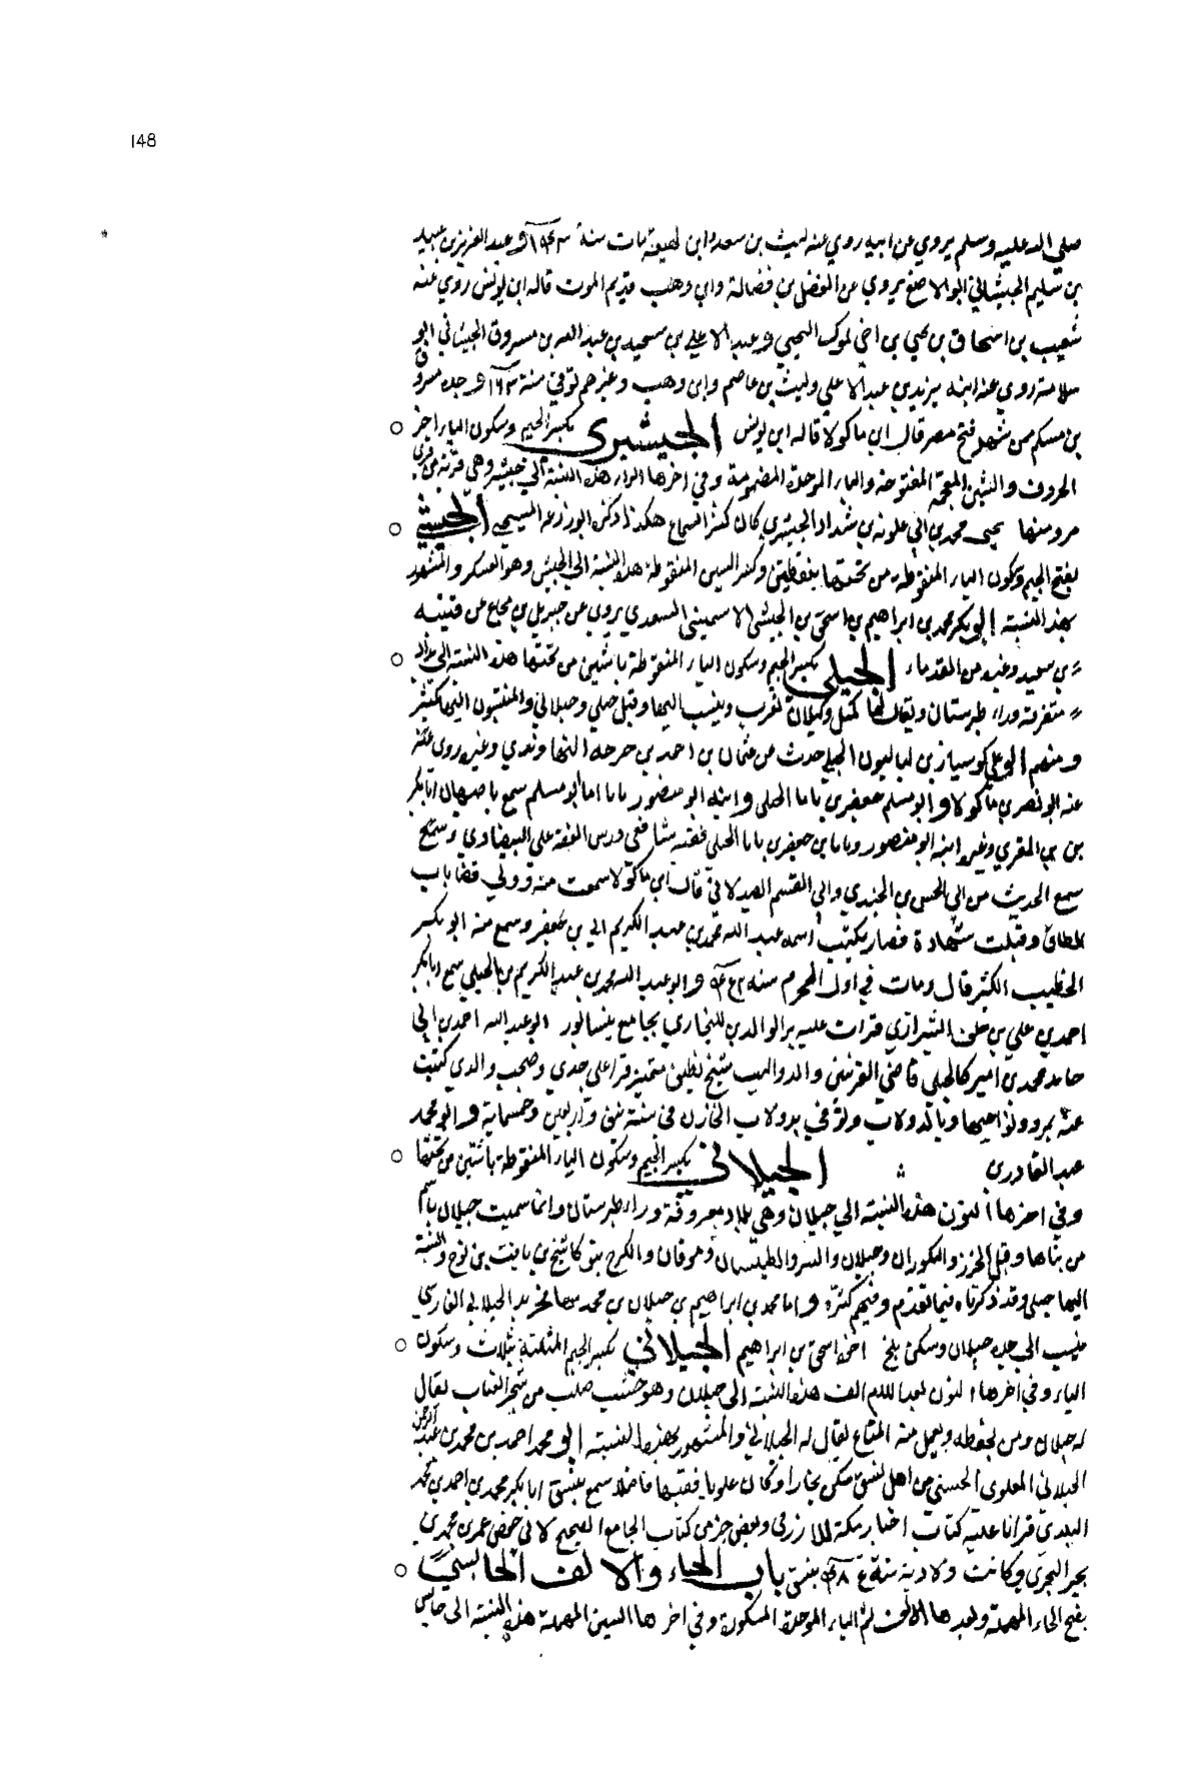 148
*
صلي الله عليه وسلم يروي عن ابيه روي عنه ليث بن سعد وابن لهيعة مات سنة وعبد العزيز بن عبيد
بن سليم الجيشاني ابو الاصبغ يروي عن المفضل بن فضالة وابن وهب قديم الموت قاله ابن يونس روي عنه
شعيب بن اسحاق بن يحيي بن اخي التجيبي وعبد الاعلي بن سعيد بن عبد الله بن مسروق الجيشاني ابو
سلامة روي عنه ابنه يزيد بن عبد الاعلي وليث بن عاصم وابن وهب وغيرهم توفي سنة ١٦٣ وجده مسروق
بن مسكم من شهد فتح مصر قال ابن ماكولا قاله ابن يونس الجيشبري بكسر الجيم وسكون الياء اخر
الحروف والشين المعجمة المفتوحة والباء الموحدة المضمومة وفي اخرها الراء هذه النسبة الي جيشبر وهي قرية من قري
مرو منها يحيى محمد بن ابي علوية بن شداد الجيشبري كان كثير السماع هكذا ذكره ابو زرعة السبحي الجيشي
بفتح الجيم وسكون الياء المنقوطة من تحتها بنقطتين وكسر الشين المنقوطة هذه النسبة الي الجيش وهو العسكر والمشهور
بهذه النسبة ابو بكر محمد بن ابراهيم بن اسحق بن الجيشي الاسميثني السعدي يروي عن جبريل بن مجاع عن قتيبة
بن سعيد وغيره من القدماء الجيلي بكسر الجيم وسكون الياء المنقوطة باثنين من تحتها هذه النسبة الي بلاد
متفرقة وراء طبرستان ويقال لها كيل وكيلان فعرب وينسب اليها وقيل جيلي وجيلاني والمنتسبون اليها كثير
ومنهم ابو علي كوسيار بن لياليون الجيلي حدث عن عثمان بن احمد بن خرجه النهاوندي وغيره روي عنه
عنه ابو نصر بن ماكولا وابو مسلم جعفر بن بابا الجيلي وابنه ابو منصور بابا اما ابو مسلم سمع باصبهان ابا بكر
بن المقري وغيره ابنه ابو منصور وبابا بن جعفر بن بابا الجيلي فقيه شافعي درس الفقه علي البيضاوي وسمع
سمع الحديث من ابي الحسن بن الجندي وابي القسم الصيدلاني قال ابن ماكولا سمعت منه وولي قضا باب
الطاق وقبلت شهادة فصار يكتب اسمه عبد الله محمد بن عبد الكريم الي بن جعفر وسمع منه ابو بكر
الخطيب الكثير قال ومات في اول المحرم سنة وابو عبد الله محمد بن عبد الكريم بن الجيلي سمع ابا بكر
احمد بن علي بن خلف الشيرازي قرات عليه بر الوالدين للبخاري بجامع نيسابور ابو عبد الله احمد بن ابي
حامد محمد بن اميركا الجيلي قاضي الفرسن والدواليب شيخ نظيف متميز قرا علي جدي وصحب والدي كتبت
عنه بمرو ونواحيها وبالدولاب وتوفي بدولاب الخازن في سنة ثنى واربعين وخمسماية وابو محمد
عبد القادرى الجيلاني بكسر الجيم وسكون الياء المنقوطة باثنين من تحتها
وفي اخرها النون هذه النسبة الي جيلان وهي بلاد معروفة وراء طبرستان وانما سميت جيلان باسم
من بناها وقيل الخزر والمكوران وجيلان والسر والطيلسان وموقان والكرج بنو كاشح بن يافث بن نوح والنسبة
اليها جيلى وقد ذكرناه فيما تقدم وفيهم كثرة واما محمد بن ابراهيم بن جيلان بن محمد الجيلاني الفارسي
ينسب الى جده جيلان وسكن بلخ اخو اسحق بن ابراهيم الجيلاني بكسر الجيم المثلثة بثلاث وسكون
الياء وفي اخرها النون بعد اللام الف هذه النسبة الى جيلان وهو خشب صلب من شجر العناب يقال
له جيلان ومن يخرطه ويعمل منه المتاع يقال له الجيلاني والمشهور بهذه النسبة ابو محمد احمد بن محمد بن عبد الرحمن
الجيلاني العلوى الحسني من اهل نسف سكن بخارا وكان علويا فقيها فاضلا سمع بنسف ابا بكر محمد بن احمد بن محمد
البلدي قرانا عليه كتاب اخبار مكة للازرقي وبعض جزء من كتاب الجامع الصحيح لابي حفص عمر بن محمد بن
بحير البجيرى وكانت ولادته سنة بنسف باب الحاء والالف الحابسي
بفتح الحاء المهملة وبعدها الالف ثم الباء الموحدة المكسورة وفي اخرها السين المهملة هذه النسبة الى حابس